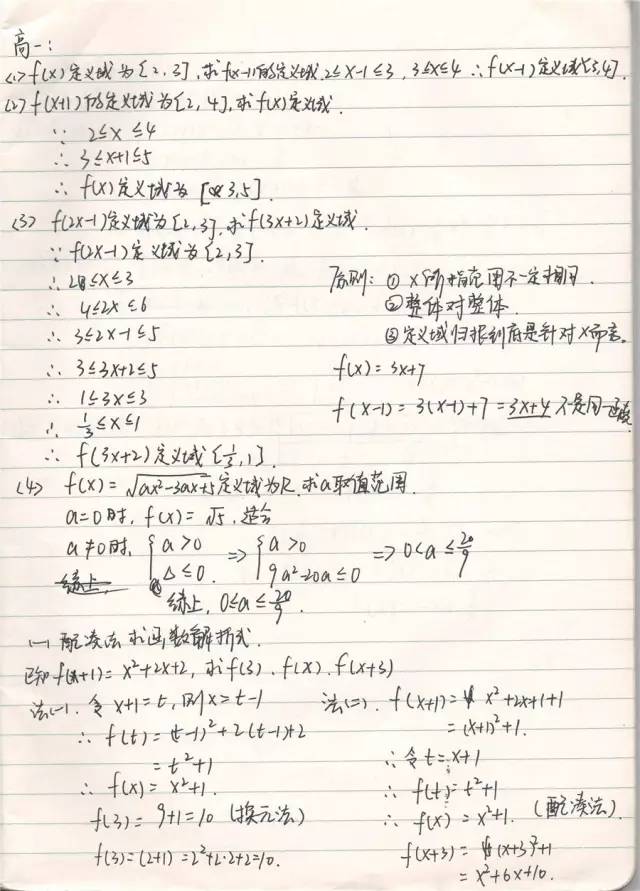 高一:
(1) f(x)定义域为[2,3],求f(x-1)的定义域.2≤x-1≤3, 3≤x≤4 ∴f(x-1)定义域[3,4].
(2) f(x+1)的定义域为[2,4],求f(x)定义域.
∵ 2≤x≤4
∴ 3≤x+1≤5
∴ f(x)定义域为 [3,5].
(3) f(2x-1)定义域为[2,3],求f(3x+2)定义域.
∵ f(2x-1)定义域为[2,3].
∴ 2≤x≤3
∴ 4≤2x≤6
∴ 3≤2x-1≤5
∴ 3≤3x+2≤5
∴ 1≤3x≤3
∴ 1/3≤x≤1
∴ f(3x+2)定义域[1/3,1].
原则: ① x所指范围不一定相同.
② 整体对整体.
③ 定义域归根到底是针对x而言。
f(x)=3x+7
f(x-1)=3(x-1)+7=3x+4 不是同一函数
(4) f(x)=√(ax²-3ax+5)定义域为R,求a取值范围.
a=0时, f(x)=√5, 适合
a≠0时, {a>0 Δ≤0. ⇒ {a>0 9a²-20a≤0 ⇒ 0<a≤20/9
综上,
综上, 0≤a≤20/9.
(一) 配凑法求函数解析式.
已知f(x+1)=x²+2x+2, 求f(3).f(x).f(x+3)
法(一). 令x+1=t,则x=t-1
∴ f(t)=(t-1)²+2(t-1)+2
=t²+1
∴ f(x)=x²+1.
f(3)=9+1=10 (换元法)
f(3)=(2+1)=2²+2·2+2=10.
法(二). f(x+1)=x²+2x+1+1
=(x+1)²+1.
∴ 令t=x+1
∴ f(t)=t²+1
∴ f(x)=x²+1. (配凑法)
f(x+3)=(x+3)²+1
=x²+6x+10.